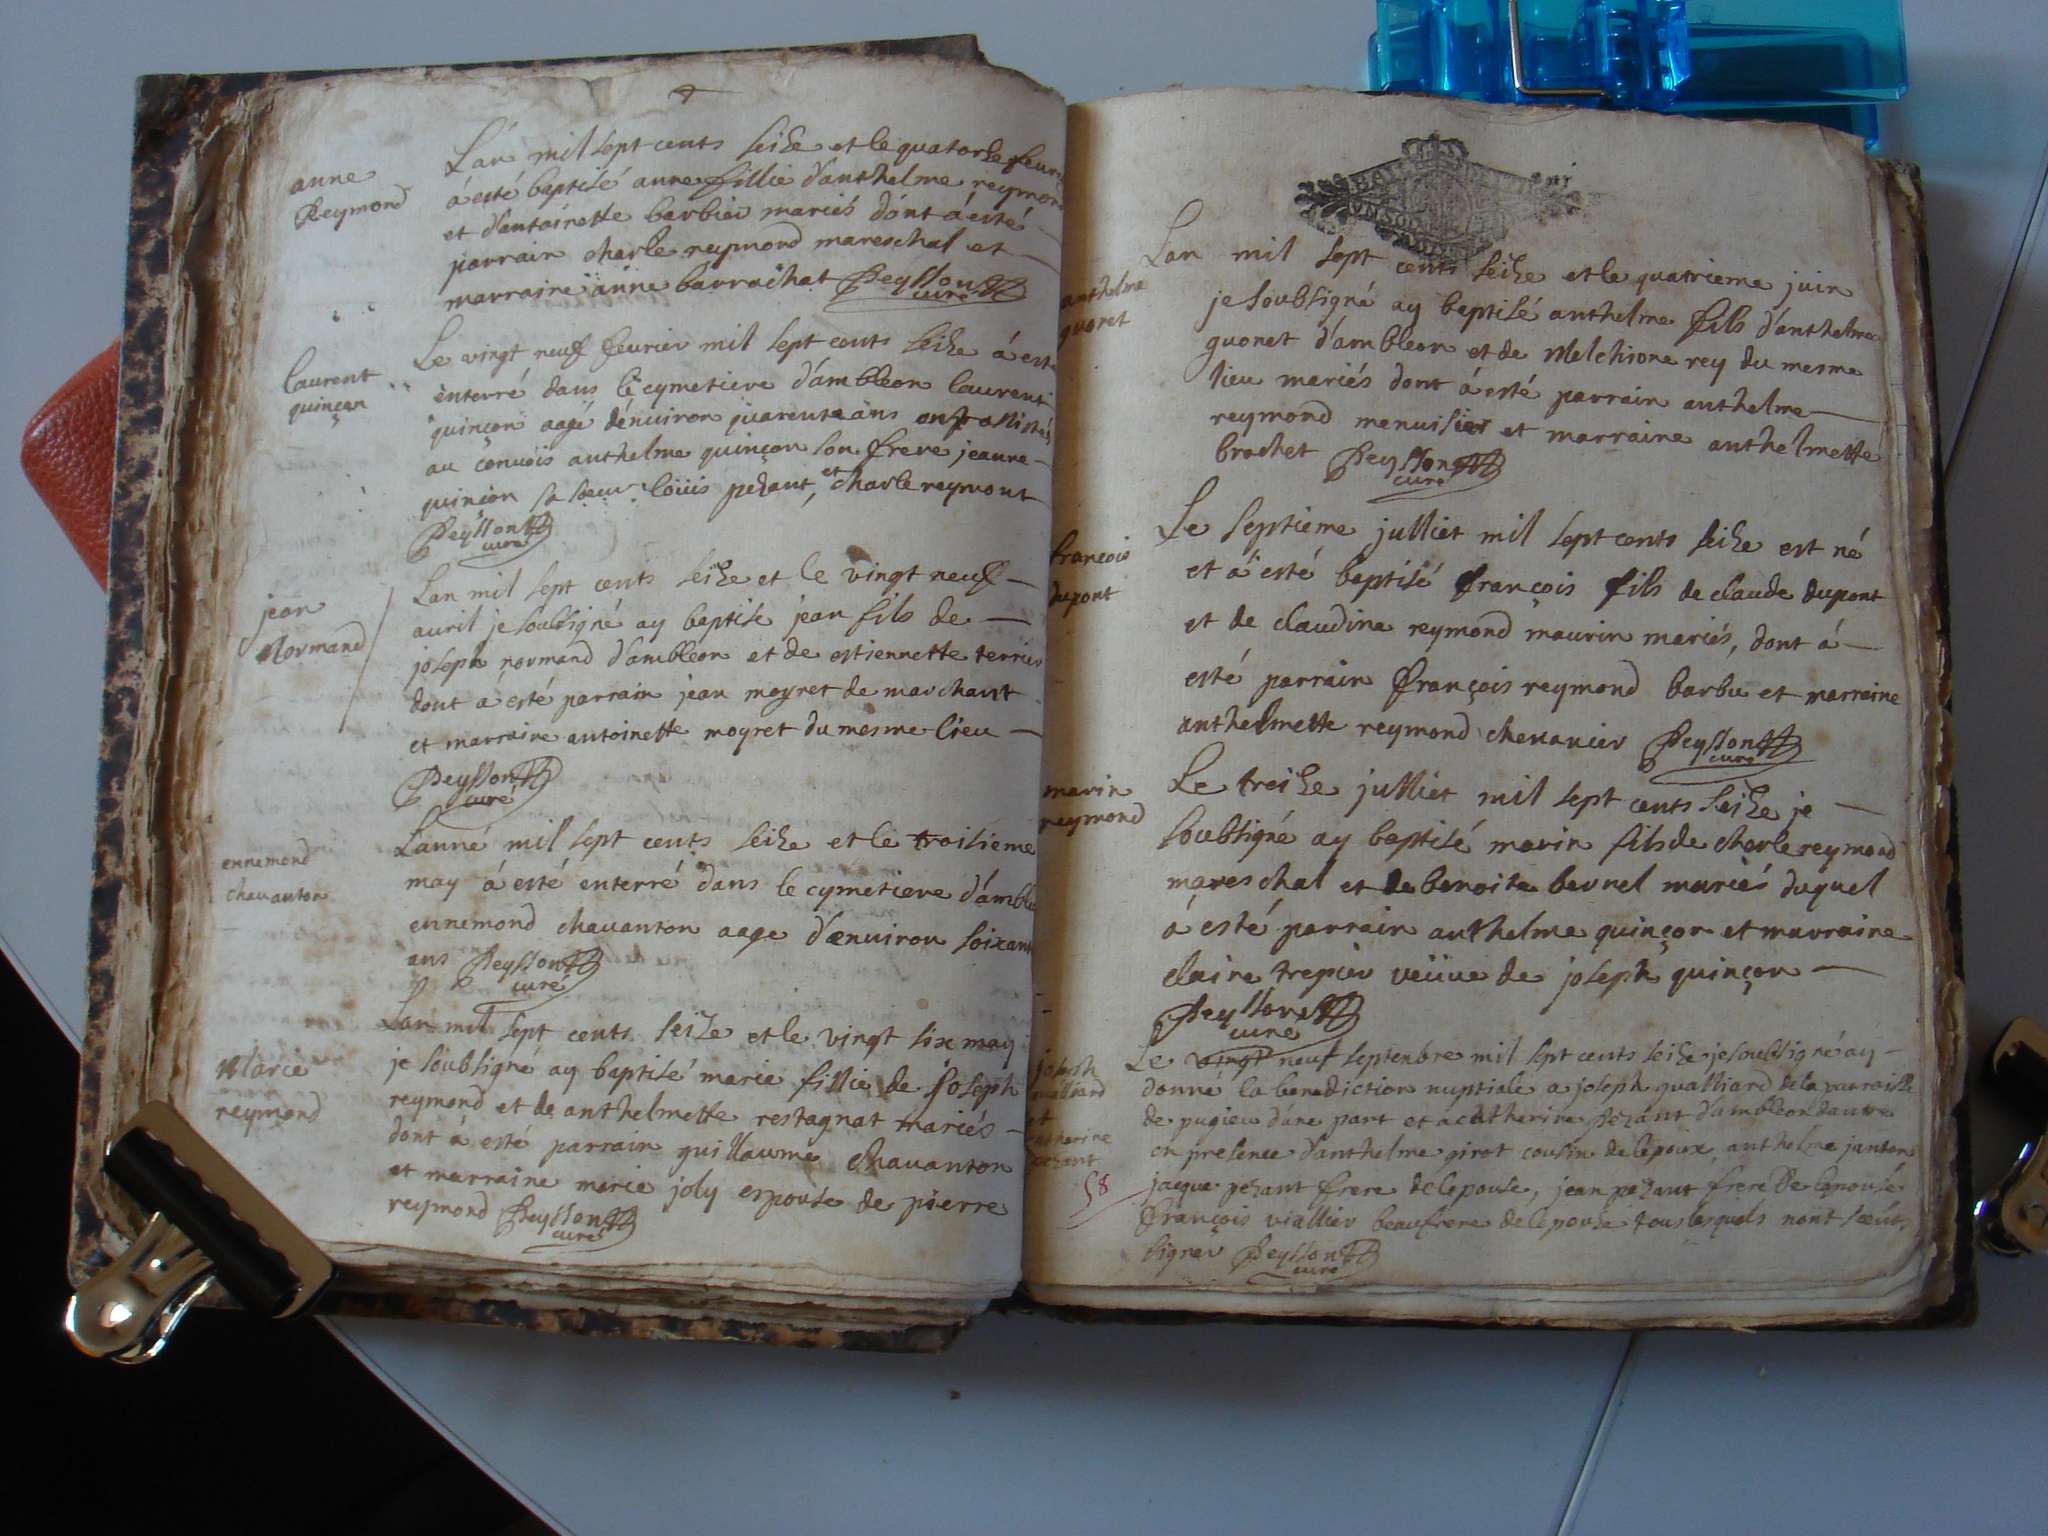 anne
Reymond
Lan mil sept cents seize et le quatorze feur
á esté baptisé anne fillie d'anthelme reymond
et d'antoinette barbier mariés dont á esté
parrain charle reymond mareschal et
marraine anne barrachat Peysson
curé
laurent
quinçon
Le vingt neuf feurier mil sept cents seize á esté
enterré dans le cymetiere d'ambleon laurent
quinçon aagé dénuiron quarente ans ont assistés
au conuois anthelme quinçon son frere jeanne
quinçon sa soeur loüis pezant, et charle reymont
Peysson
curé
jean
Normand
Lan mil sept cents seize et le vingt neuf
auril je soubsigné ay baptise jean fils de
joseph normand d'ambleon et de estiennette terrier
dont a esté parrain jean moyret de marchant
et marraine antoinette moyret du mesme lieu
Peysson
curé
ennemond
chauanton
Lanné mil sept cents seize et le troisieme
may á esté enterré dans le cymetiere d'amble
ennemond chauanton aage d'enuiron soixant
ans Peysson
curé
Marie
reymond
Lan mil sept cents seize et le vingt six may
je soubsigné ay baptisé marie fillie de Joseph
reymond et de anthelmette restagnat mariés
dont á esté parrain guillaume chauanton
et marraine marie joly espouse de pierre
reymond Peysson
curé
anthelme
guonet
Lan mil sept cents seize et le quatrieme juin
je soubsigné ay baptisé anthelme fils d'anthelme
guonet d'ambleon et de Melchione rey du mesme
lieu mariés dont á esté parrain anthelme
reymond menuisier et marraine anthelmette
brochet Peysson
curé
françois
dupont
Le septieme julliet mil sept cents seize est né
et á esté baptisé françois fils de claude dupont
et de claudine reymond maurin mariés, dont á
esté parrain françois reymond barbu et marraine
anthelmette reymond chenauier Peysson
curé
marin
reymond
Le treize julliet mil sept cents seize je
soubsigné ay baptisé marin fils de charle reymond
mareschal et de benoite bernel mariés duquel
á esté parrain anthelme quinçon et marraine
claire trepier veüue de joseph quinçon
Peysson
curé
joseph
gualliard
et
catherine
pezant
58
Le vingt neuf septenbre mil sept cents seize je soubsigné ay
donne la benediction nuptiale a joseph gualliard de la parroisse
de pugieu d'une part et a catherine pezant d'ambleon dautre
en presence d'anthelme girot cousin de lepoux, anthelme janton
jacque pezant frere de lepouse, jean pezant frere de lepouse
françois viallier beaufrere de lepouse tous lesquels nont sceüs
signer Peysson
curé